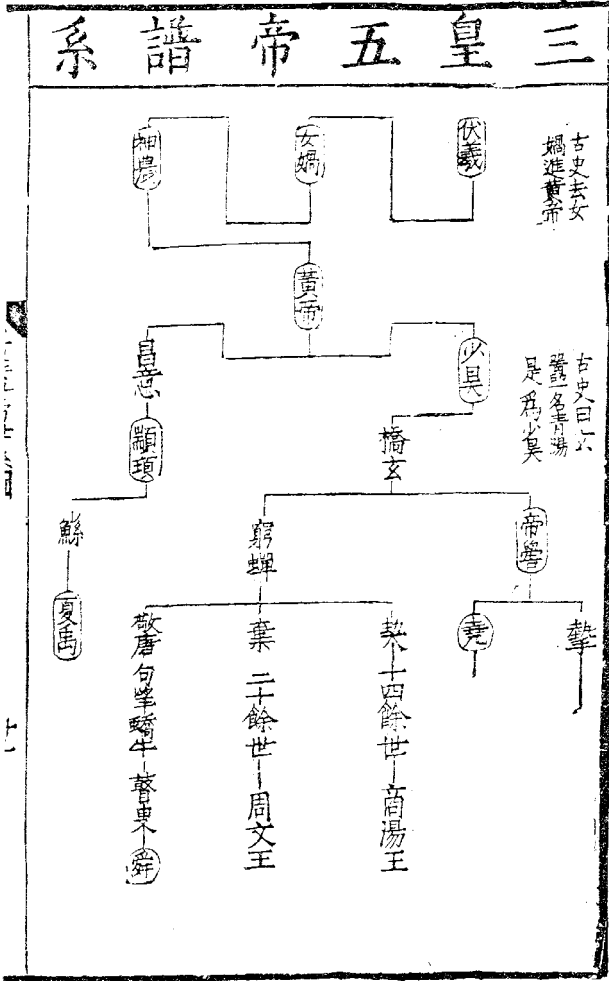 三皇五帝譜系
古史去女
媧進黃帝
伏羲
女媧
神農
黃帝
古史曰玄
囂一名青陽
是爲少昊
少昊
昌意
顓頊
橋玄
帝嚳
窮蟬
鯀
夏禹
摯
堯
契十四餘世商湯王
棄二十餘世周文王
敬康句望蟜牛瞽叟舜